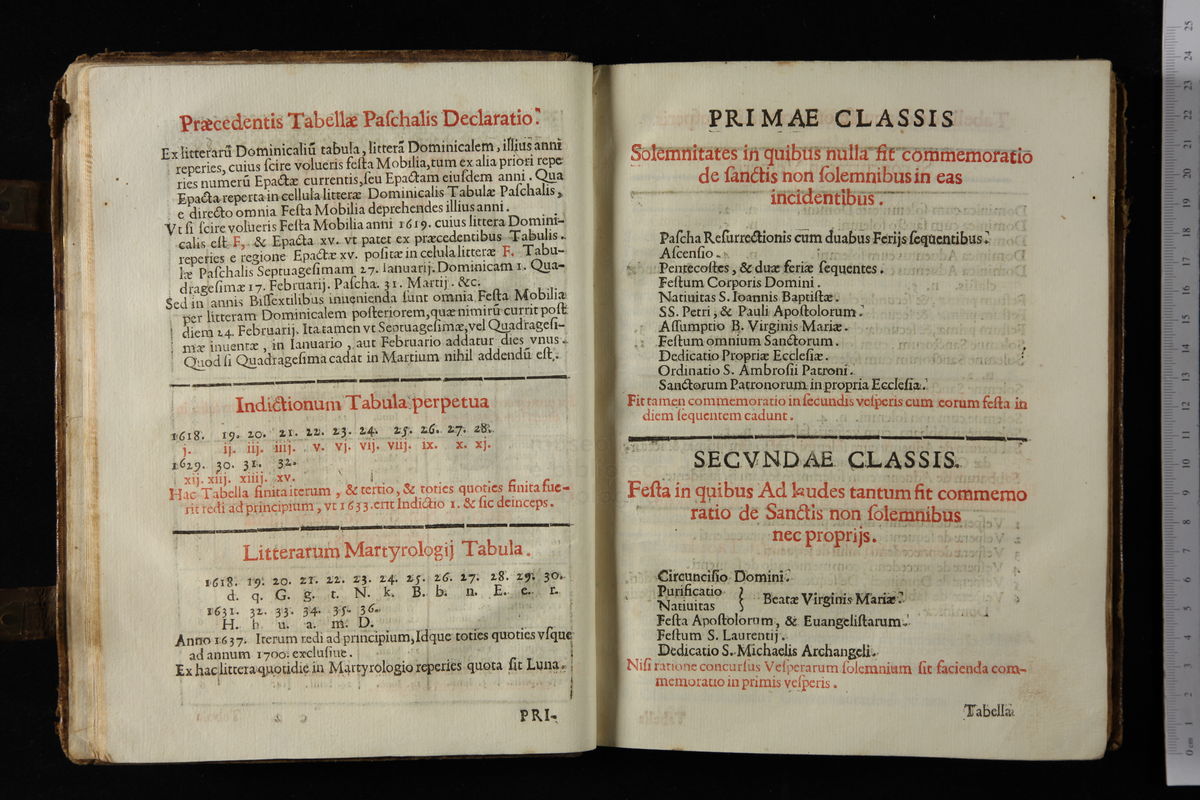 Præcedentis Tabellæ Paſchalis Declaratio.
Ex litterarũ Dominicaliũ tabula, litterã Dominicalem, illius anni
reperies, cuius ſcire volueris feſta Mobilia, tum ex alia priori repe
ries numerũ Epactæ currentis, ſeu Epactam eiuſdem anni. Qua
Epacta reperta in cellula litteræ Dominicalis Tabulæ Paſchalis,
e directo omnia Feſta Mobilia deprehendes illius anni.
Vt ſi ſcire volueris Feſta Mobilia anni 1619. cuius littera Domini-
calis eſt F, & Epacta xv. vt patet ex præcedentibus Tabulis.
reperies e regione Epactæ xv. poſitæ in celula litteræ F. Tabu-
læ Paſchalis Septuageſimam 27. Ianuarij. Dominicam 1. Qua-
drageſimæ 17. Februarij. Paſcha. 31. Martij. &c.
Sed in annis Biſſextilibus inuenienda ſunt omnia Feſta Mobilia
per litteram Dominicalem poſteriorem, quæ nimirũ currit poſt
diem 24. Februarij. Ita tamen vt Septuageſimæ, vel Quadrageſi-
mæ inuentæ, in Ianuario, aut Februario addatur dies vnus.
Quod ſi Quadrageſima cadat in Martium nihil addendũ eſt.
Indictionum Tabula perpetua
1618. 19. 20. 21. 22. 23. 24. 25. 26. 27. 28.
j. ij. iij. iiij. v. vj. vij. viij. ix. x. xj.
1629. 30. 31. 32.
xij. xiij. xiiij. xv.
Hac Tabella finita iterum, & tertio, & toties quoties finita fue-
rit redi ad principium, vt 1633. erit Indictio 1. & ſic deinceps.
Litterarum Martyrologij Tabula.
1618. 19. 20. 21. 22. 23. 24. 25. 26. 27. 28. 29. 30.
d. q. G. g. t. N. k. B. b. n. E. e. r.
1631. 32. 33. 34. 35. 36.
H. h u. a. m. D.
Anno 1637. Iterum redi ad principium, Idque toties quoties vſque
ad annum 1700. excluſiue.
Ex hac littera quotidie in Martyrologio reperies quota ſit Luna.
PRI-
PRIMAE CLASSIS
Solemnitates in quibus nulla fit commemoratio
de ſanctis non ſolemnibus in eas
incidentibus.
Paſcha Reſurrectionis cum duabus Ferijs ſequentibus.
Aſcenſio.
Pentecoſtes, & duæ feriæ ſequentes.
Feſtum Corporis Domini.
Natiuitas S. Ioannis Baptiſtæ.
SS. Petri, & Pauli Apoſtolorum.
Aſſumptio B. Virginis Mariæ.
Feſtum omnium Sanctorum.
Dedicatio Propriæ Eccleſiæ.
Ordinatio S. Ambroſii Patroni.
Sanctorum Patronorum in propria Eccleſia.
Fit tamen commemoratio in ſecundis veſperis cum eorum feſta in
diem ſequentem cadunt.
SECVNDAE CLASSIS.
Feſta in quibus Ad laudes tantum fit commemo
ratio de Sanctis non ſolemnibus
nec proprijs.
Circunciſio Domini.
Purificatio
Natiuitas } Beatæ Virginis Mariæ.
Feſta Apoſtolorum, & Euangeliſtarum.
Feſtum S. Laurentij.
Dedicatio S. Michaelis Archangeli.
Niſi ratione concurſus Veſperarum ſolemnium ſit facienda com-
memoratio in primis veſperis.
Tabella.